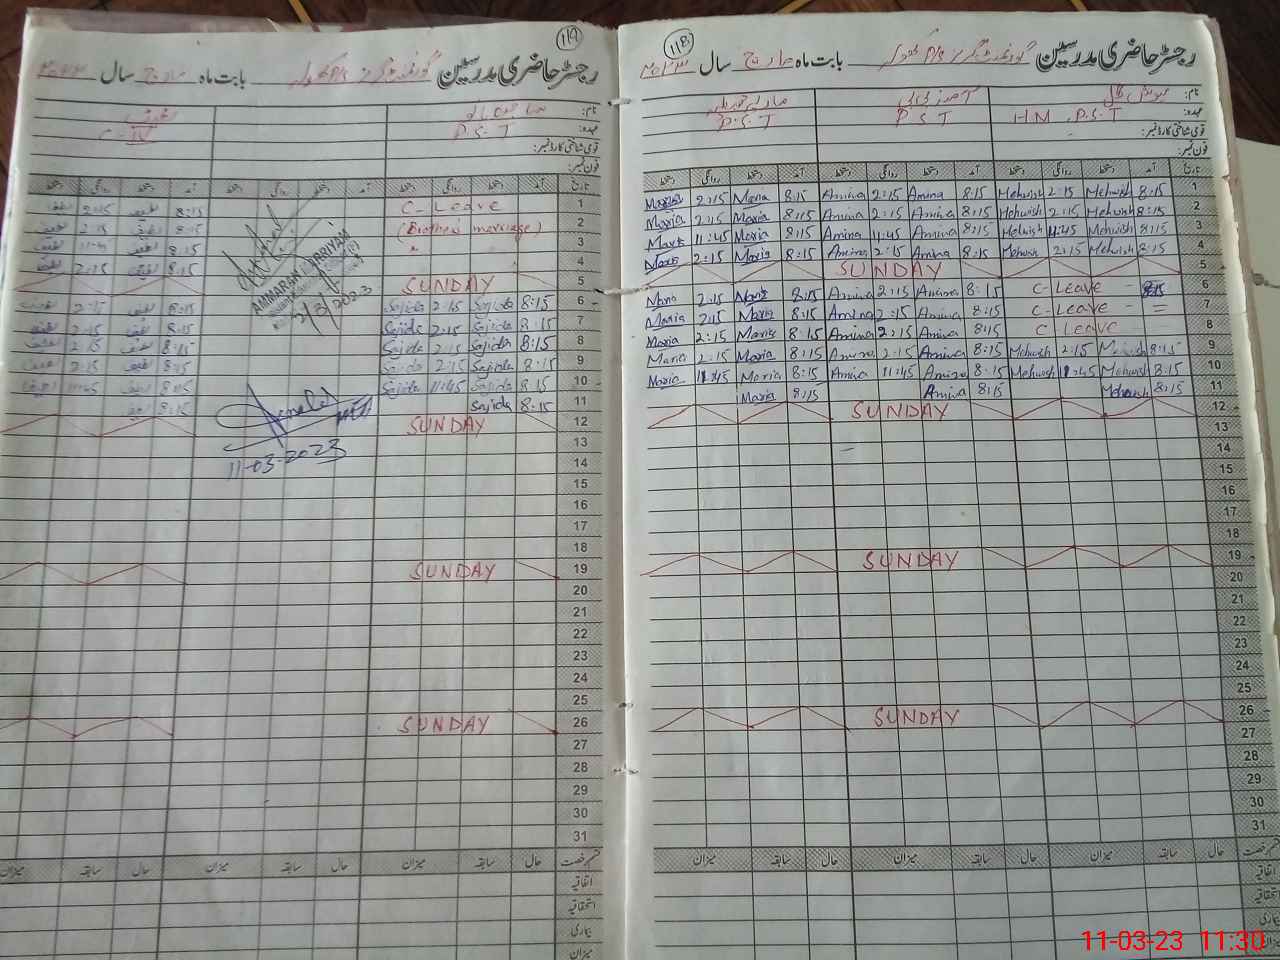 118
رجسٹر حاضری مدرسین گورنمنٹ گرلز P/S بابت ماہ مارچ سال ۲۰۲۳
نام:
عہدہ: HM P.S.T P.S.T P.S.T
قومی شناختی کارڈ نمبر:
فون نمبر:
تاریخ آمد دستخط روانگی دستخط آمد دستخط روانگی دستخط آمد دستخط روانگی دستخط
1 8:15 Mehwish 2:15 Mehwish 8:15 Amina 2:15 Amina 8:15 Maria 2:15 Maria
2 8:15 Mehwish 2:15 Mehwish 8:15 Amina 2:15 Amina 8:15 Maria 2:15 Maria
3 8:15 Mehwish 11:45 Mehwish 8:15 Amina 11:45 Amina 8:15 Maria 11:45 Maria
4 8:15 Mehwish 2:15 Mehwish 8:15 Amina 2:15 Amina 8:15 Maria 2:15 Maria
5 SUNDAY
6 C-Leave 8:15 Amina 2:15 Amina 8:15 Maria 2:15 Maria
7 C-Leave 8:15 Amina 2:15 Amina 8:15 Maria 2:15 Maria
8 C Leave 8:15 Amina 2:15 Amina 8:15 Maria 2:15 Maria
9 8:15 Mehwish 2:15 Mehwish 8:15 Amina 2:15 Amina 8:15 Maria 2:15 Maria
10 8:15 Mehwish 11:45 Mehwish 8:15 Amina 11:45 Amina 8:15 Maria 11:45 Maria
11 8:15 Mehwish 8:15 Amina 8:15 Maria
12 SUNDAY
13
14
15
16
17
18
19 SUNDAY
20
21
22
23
24
25
26 SUNDAY
27
28
29
30
31
قسم رخصت حال سابقہ میزان حال سابقہ میزان حال سابقہ میزان
اتفاقیہ
استحقاقیہ
بیماری
میزان
119
رجسٹر حاضری مدرسین گورنمنٹ گرلز P/S بابت ماہ مارچ سال ۲۰۲۳
نام:
عہدہ: P.S.T C-IV
قومی شناختی کارڈ نمبر:
فون نمبر:
تاریخ آمد دستخط روانگی دستخط آمد دستخط روانگی دستخط آمد دستخط روانگی دستخط
1 C-Leave 8:15 2:15
2 (Brother marriage) 8:15 2:15
3 " 8:15 11:45
4 8:15 2:15
AMMARAH
2/3/2023
5 SUNDAY
6 8:15 Sajida 2:15 Sajida 8:15 2:15
7 8:15 Sajida 2:15 Sajida 8:15 2:15
8 8:15 Sajida 2:15 Sajida 8:15 2:15
9 8:15 Sajida 2:15 Sajida 8:15 2:15
10 8:15 Sajida 11:45 Sajida 8:15 11:45
11 8:15 Sajida 8:15
12 SUNDAY
11-03-2023
13
14
15
16
17
18
19 SUNDAY
20
21
22
23
24
25
26 SUNDAY
27
28
29
30
31
قسم رخصت حال سابقہ میزان حال سابقہ میزان حال سابقہ میزان
اتفاقیہ
استحقاقیہ
بیماری
میزان
11-03-23 11:30